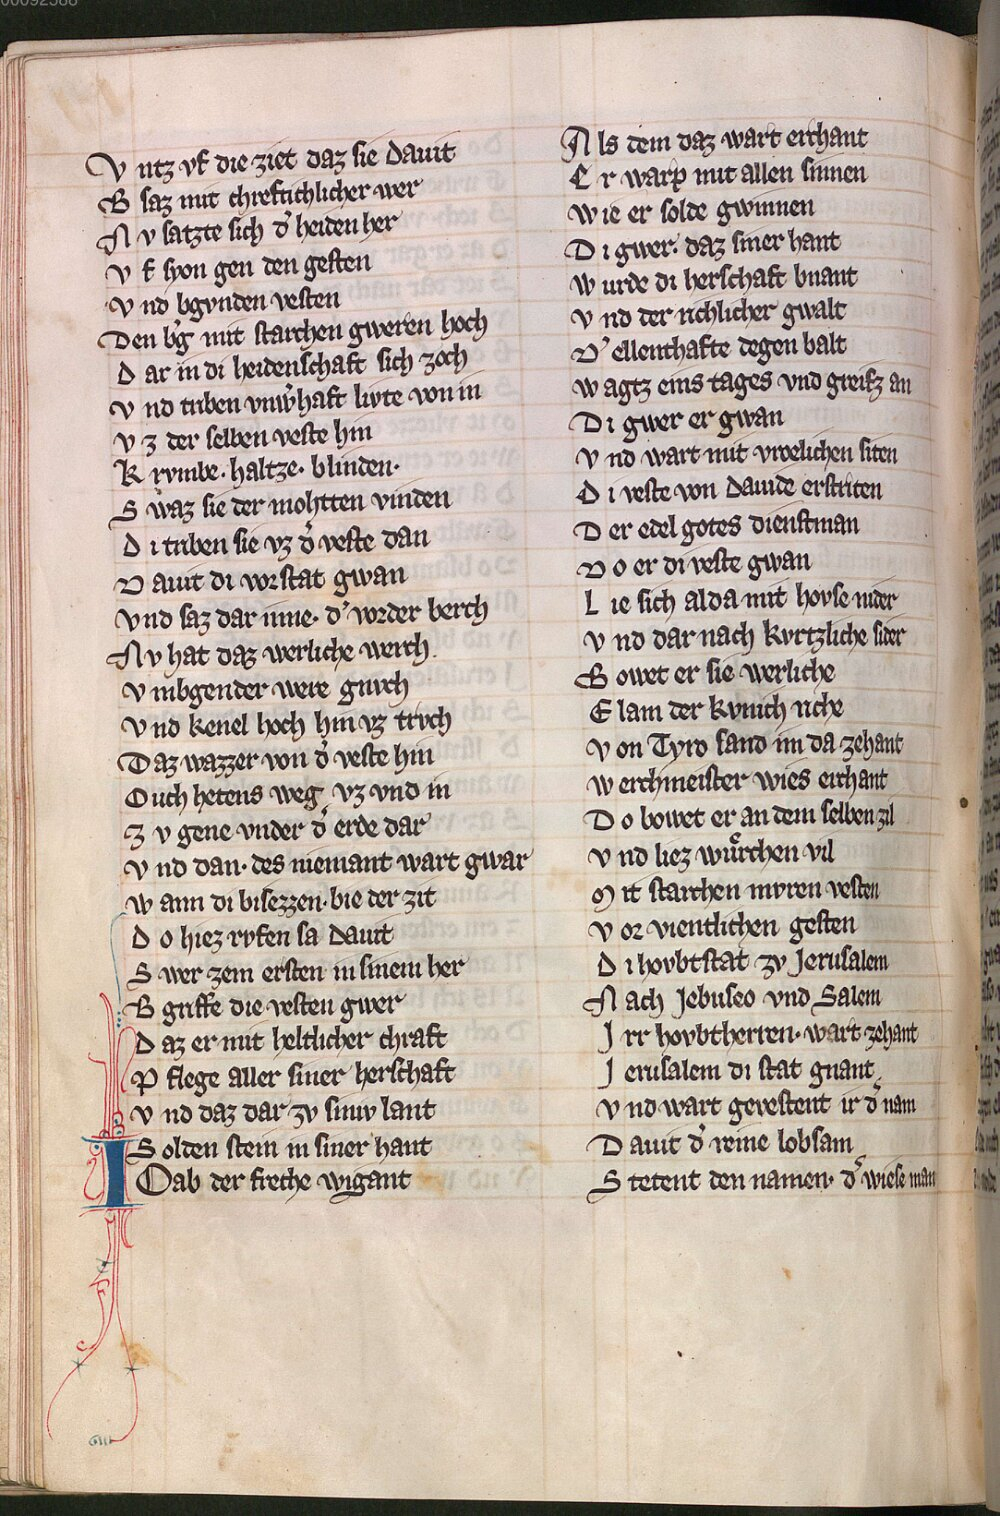 V ntz vf die ziet daz sie Dauit
B saz mit chreftichlicher wer
N v satzte sich d̾ heiden her
V f syon gen den gesten
V nd bgvnden vesten
Den b̾g mit starchen gweren hoch
D ar in di heidenschaft sich zoch
V nd triben vnw̾haft livte von in
V z der selben veste hin
K rvmbe · haltze · blinden ·
S waz sie der mohtten vinden
D i triben sie vz d̾ veste dan
D auit di vorstat gwan
Vnd saz dar inne · d̾ vorder berch
Nv hat daz werliche werch ·
V mbgender were gnvch
V nd kenel hoch hin vz trvch
Daz wazzer von d̾ veste hin
Ouch hetens weg vz vnd in
Z v gene vnder d̾ erde dar
V nd dan · des niemant wart gwar
W ann di bisezzen · bie der zit
D o hiez rvfen sa Dauit
S wer zem ersten in sinem her
B griffe die vesten gwer
D az er mit heltlicher chraft
P flege aller siner herschaft
V nd daz dar zv siniv lant
S olden stein in siner hant
I Oab der freche wigant
A ls dem daz wart erchant
E r warp mit allen sinnen
W ie er solde gwinnen
D i gwer · daz siner hant
W urde di herschaft bnant
V nd der richlicher gwalt
D̾ ellenthafte degen balt
W agtz eins tages vnd greifz an
D i gwer er gwan
V nd wart mit vroelichen siten
D i veste von Dauide erstriten
D er edel gotes dienstman
D o er di veste gwan
L ie sich alda mit hovse nider
V nd dar nach kvrtzliche sider
B owet er sie werliche
E lam der kvnich riche
V on Tyro sand im da zehant
W erchmeister wies erchant
D o bowet er an dem selben zil
V nd liez wůrchen vil
M it starchen mvren vesten
V or vientlichen gesten
D i hovbtstat zv Jerusalem
N ach Jebuseo vnd Salem
J rr hovbtherren · wart zehant
J erusalem di stat gnant
V nd wart gevestent ir d̾ nam
D auit d̾ reine lobsam
S tetent den namen · d̾ wiese man